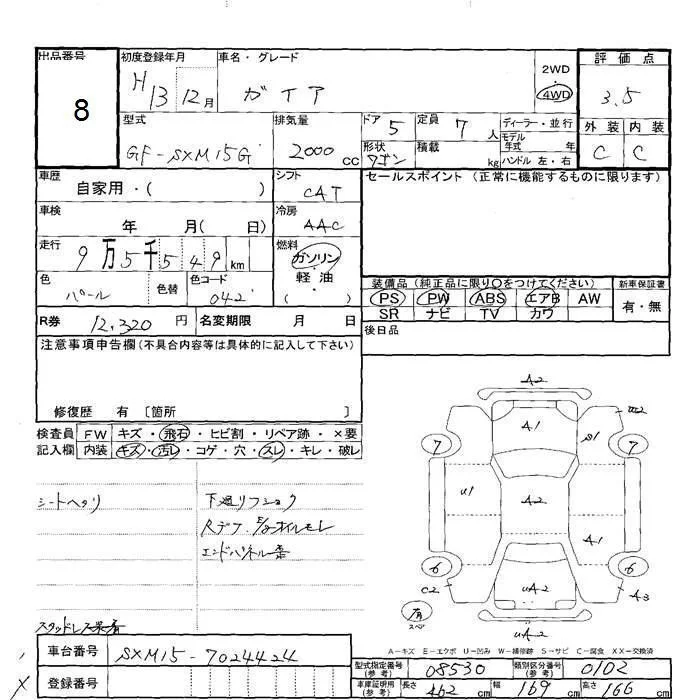 出品番号 8
初度登録年月 H 13 12月
車名・グレード ガイア
2WD 4WD
評価点 3.5
外装 内装
C C
型式 GF-SXM15G
排気量 2000cc
ドア 5
定員 7人
形状 ワゴン
積載 kg
ディーラー・並行
モデル年式 年
ハンドル 左・右
車歴 自家用・( )
シフト CAT
セールスポイント (正常に機能するものに限ります)
車検 年 月( 日)
冷房 AAC
走行 9万5千549km
燃料 ガソリン・軽油 ( )
色 パール 色替
色コード 042
装備品(純正品に限り○をつけてください) 新車保証書
PS PW ABS エアB AW 有・無
SR ナビ TV カワ
R券 12,320円 名変期限 月 日
後日品
注意事項申告欄(不具合内容等は具体的に記入して下さい)
修復歴 有 〔箇所 〕
検査員 FW キズ・飛石・ヒビ割・リペア跡・×要
記入欄 内装 キズ・汚レ・コゲ・穴・スレ・キレ・破レ
シートヘタリ
下廻リフショク
Rデフ、E/Gオイルモレ
エンドパネル一番
スタッドレス装着
A2
A1
S1
7 7
U1
A2
A1
6 6
C2
UA2
A3
有 スペア
UA2
A-キズ E-エクボ U-凹み W-補修跡 S-サビ C-腐食 XX-交換済
車台番号 SXM15-7024424
登録番号
型式指定番号(参考) 08530 類別区分番号(参考) 0102
車庫証明用(参考) 長さ 462cm 幅 169cm 高さ 166cm